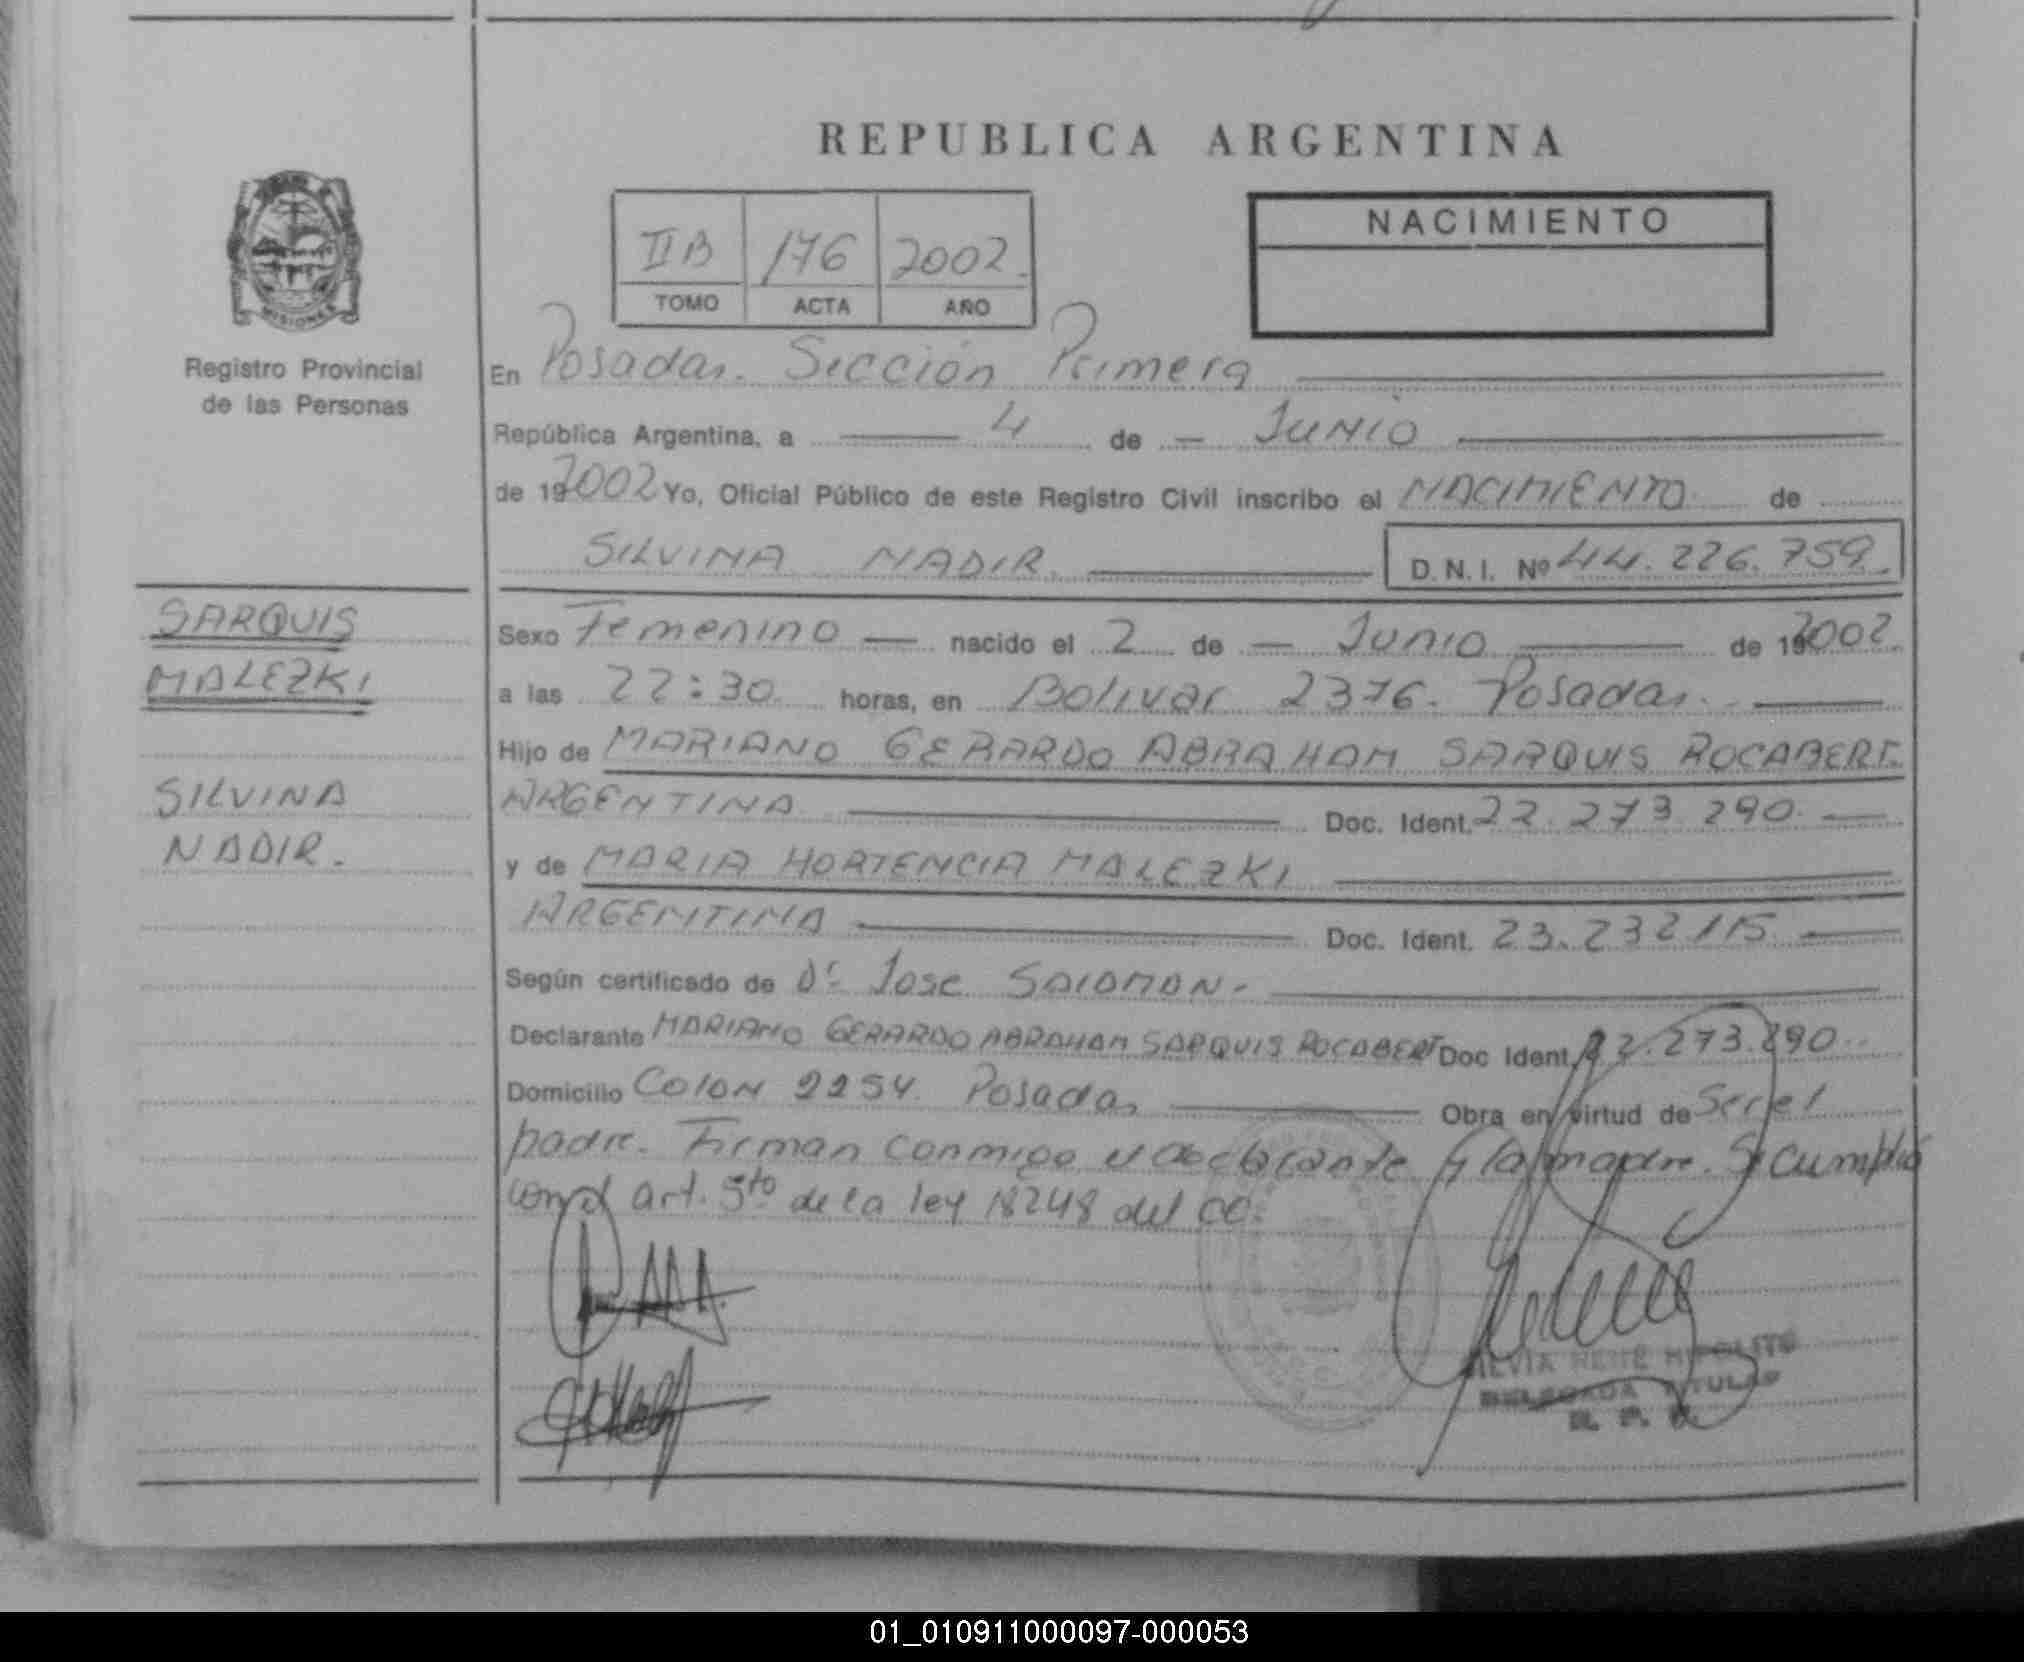 REPUBLICA ARGENTINA
NACIMIENTO
IIB 176 2002
TOMO ACTA AÑO
MISIONES
Registro Provincial
de las Personas
En Posadas. Sección Primera
República Argentina, a 4 de Junio
de 192002 Yo, Oficial Público de este Registro Civil inscribo el NACIMIENTO de
SILVINA NADIR. D.N.I. Nº 44.226.759
SARQUIS
MALEZKI
SILVINA
NADIR.
Sexo Femenino nacido el 2 de Junio de 192002.
a las 22:30 horas, en Bolivar 2376. Posadas.
Hijo de MARIANO GERARDO ABRAHAM SARQUIS ROCABERT.
ARGENTINA Doc. Ident. 22.273.290.
y de MARIA HORTENCIA MALEZKI
ARGENTINA Doc. Ident. 23.232115
Según certificado de Dr Jose SALOMON.
Declarante MARIANO GERARDO ABRAHAM SARQUIS ROCABERT Doc Ident. 22.273.290
Domicilio COLON 2254. Posadas Obra en virtud de Ser el
padre. Firman conmigo el declarante y la madre. Se cumplió
con el art. 5to de la ley 18248 del CC.
SILVIA RENÉ HIPOLITO
DELEGADA TITULAR
R. P. P.
01_010911000097-000053